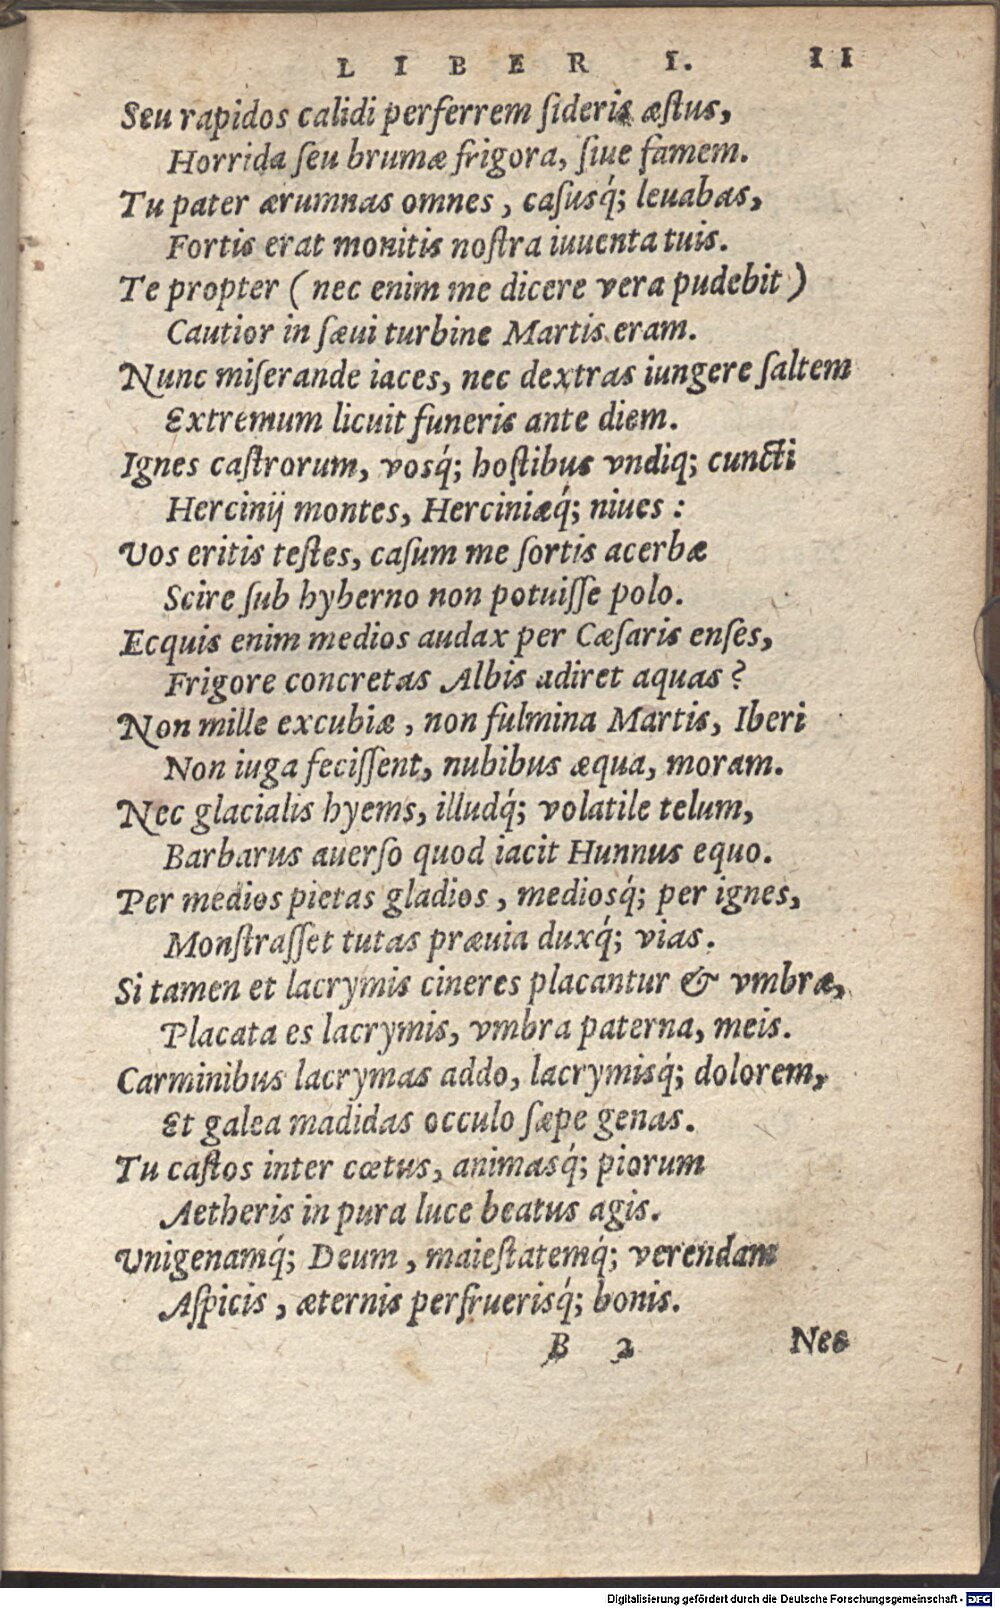 LIBER I. 11
Seu rapidos calidi perferrem ſideris æſtus,
Horrida ſeu brumæ frigora, ſiue famem.
Tu pater ærumnas omnes, caſusq́; leuabas,
Fortis erat monitis noſtra iuuenta tuis.
Te propter (nec enim me dicere vera pudebit)
Cautior in ſæui turbine Martis eram.
Nunc miſerande iaces, nec dextras iungere ſaltem
Extremum licuit funeris ante diem.
Ignes caſtrorum, vosq́; hoſtibus vndiq; cuncti
Hercinij montes, Herciniæq́; niues:
Vos eritis teſtes, caſum me ſortis acerbæ
Scire ſub hyberno non potuiſſe polo.
Ecquis enim medios audax per Cæſaris enſes,
Frigore concretas Albis adiret aquas?
Non mille excubiæ, non fulmina Martis, Iberi
Non iuga feciſſent, nubibus æqua, moram.
Nec glacialis hyems, illudq́; volatile telum,
Barbarus auerſo quod iacit Hunnus equo.
Per medios pietas gladios, mediosq́; per ignes,
Monſtraſſet tutas præuia duxq́; vias.
Si tamen et lacrymis cineres placantur & vmbræ,
Placata es lacrymis, vmbra paterna, meis.
Carminibus lacrymas addo, lacrymisq́; dolorem,
Et galea madidas occulo ſæpe genas.
Tu caſtos inter cœtus, animasq́; piorum
Aetheris in pura luce beatus agis.
Vnigenamq́; Deum, maieſtatemq́; verendam
Aſpicis, æternis perfruerisq́; bonis.
B 2 Nec
Digitalisierung gefördert durch die Deutsche Forschungsgemeinschaft - DFG